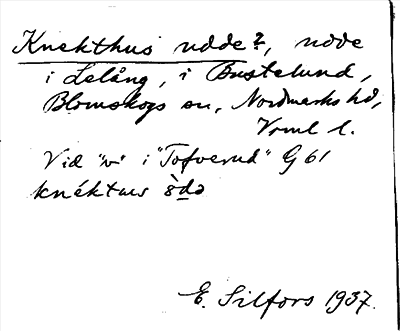 Knekthus udde?, udde
i Lelång, i Bustelund,
Blomskogs sn, Nordmarks hd,
Vrml l.
Vid "w" i "Tofverud" G 61
knéktus ùdə
E. Silfors 1937.